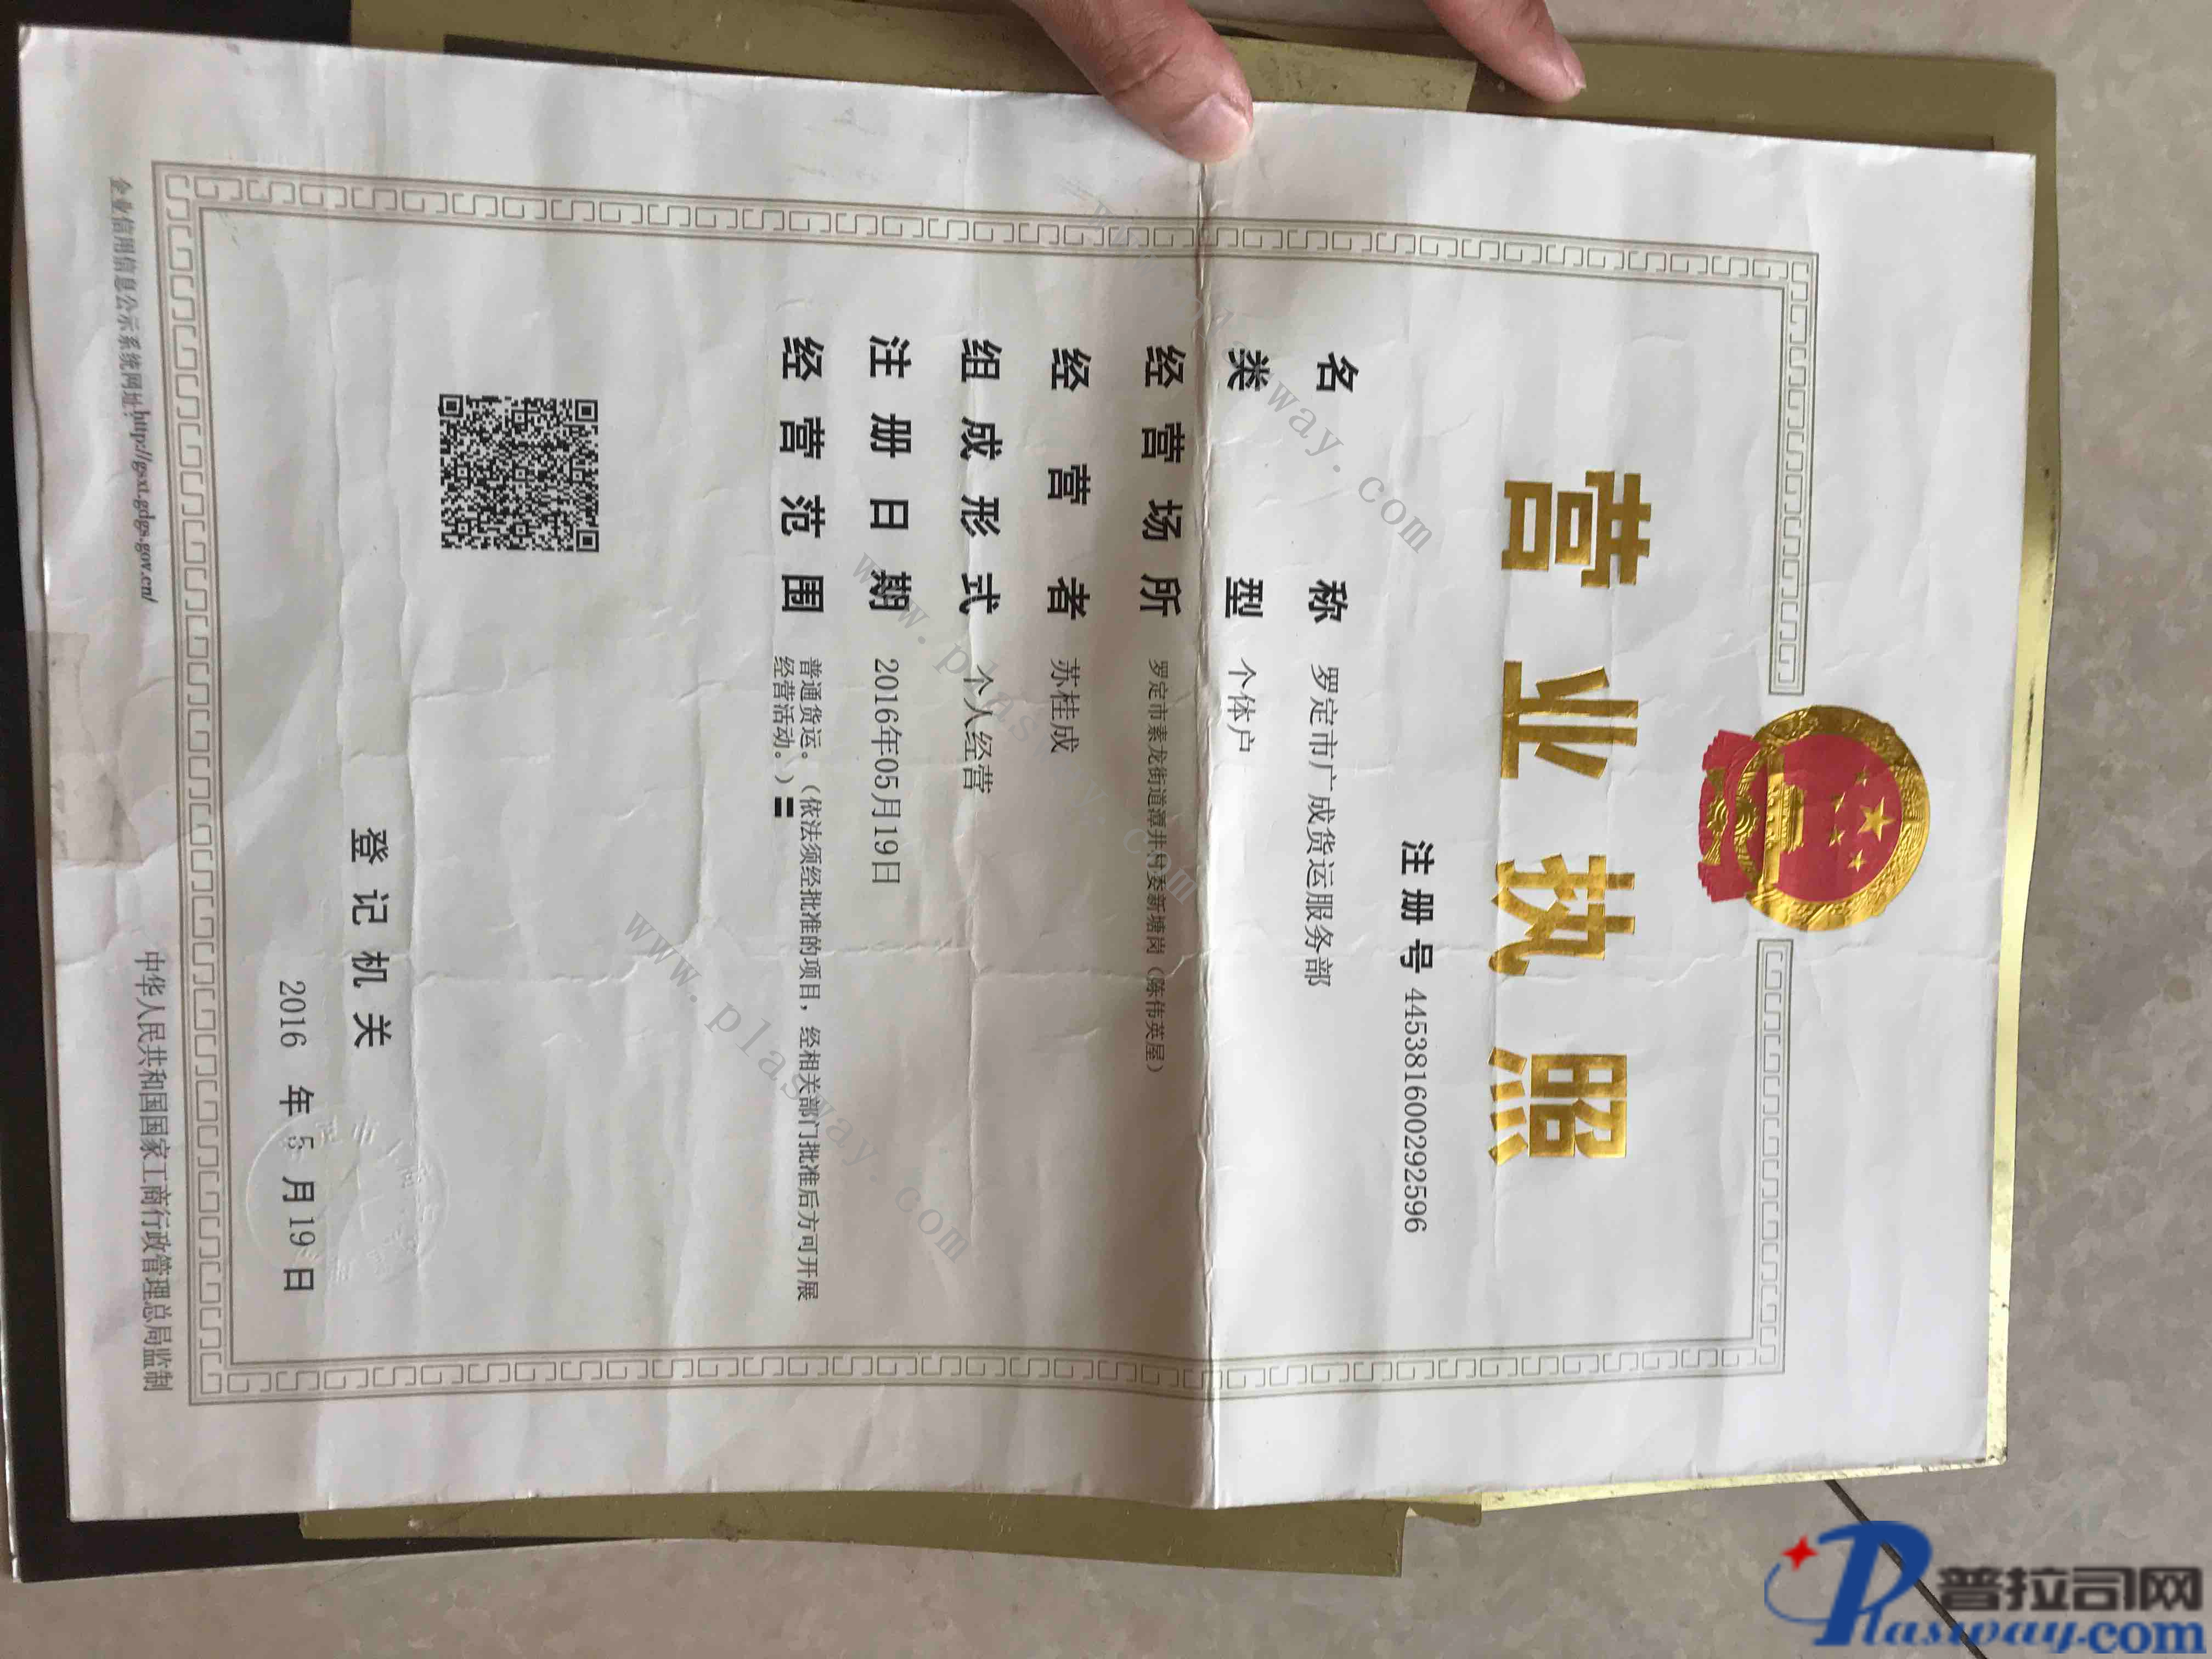 营业执照
注册号 445381600292596
名称 罗定市广成货运服务部
类型 个体户
经营场所 罗定市素龙街道潭井村委新塘岗（陈伟英屋）
经营者 苏桂成
组成形式 个人经营
注册日期 2016年05月19日
经营范围 普通货运。（依法须经批准的项目，经相关部门批准后方可开展
经营活动。）〓
登记机关
2016 年 5 月 19 日
企业信用信息公示系统网址：http://gsxt.gdgs.gov.cn/
中华人民共和国国家工商行政管理总局监制
www.plasway.com
www.plasway.com
www.plasway.com
普拉司网
Plasway.com